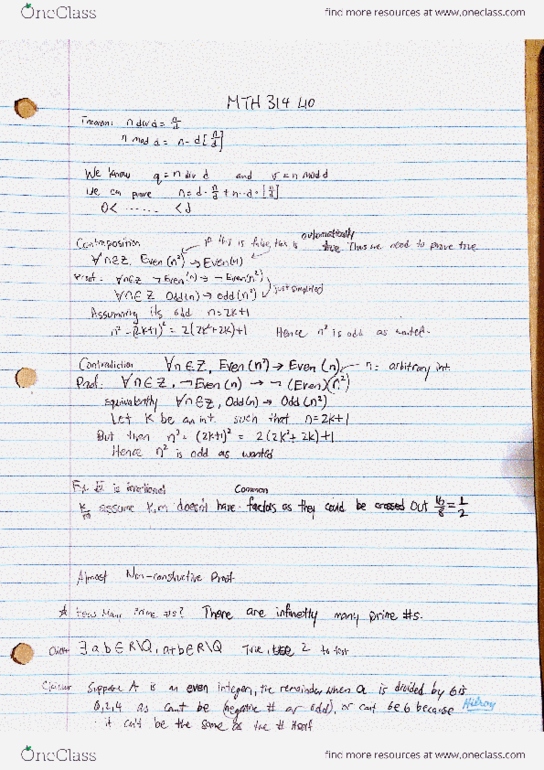 OneClass find more resources at www.oneclass.com
MTH 314 L10
Theorem: n div d = n/d
n mod d = n - d[n/d]
We know q = n div d and r = n mod d
We can prove n = d · n/d + n - d · [n/d]
0< ...... <d
Contraposition if this is false, this is automatically true. Thus we need to prove true
∀n∈Z, Even(n²) → Even(n)
Proof: ∀n∈Z ¬Even(n) → ¬Even(n²)
∀n∈Z Odd(n) → odd(n²) just simplified
Assuming its odd n=2k+1
n² = (2k+1)² = 2(2k²+2k)+1 Hence n² is odd as wanted.
Contradiction ∀n∈Z, Even(n²) → Even(n) n = arbitrary int.
Proof: ∀n∈Z, ¬Even(n) → ¬(Even)(n²)
Equivalently ∀n∈Z, Odd(n) → Odd(n²)
Let K be an int. such that n=2k+1
But then n² = (2k+1)² = 2(2k²+2k)+1
Hence n² is odd as wanted
Ex is irrational
K/m assume K,m doesn't have common factors as they could be crossed out 16/8 = 1/2
Almost Non-constructive Proof
☆ How Many Prime #s? There are infinetly many prime #s.
∃ a b ∈ R\Q, a+b ∈ R\Q True, 2 to
Suppose A is an even integer, the remainder when a is divided by 6 is
0,2,4 as cant be (negative # or odd), or cant be 6 because
it can't be the same as the # itself
OneClass find more resources at www.oneclass.com